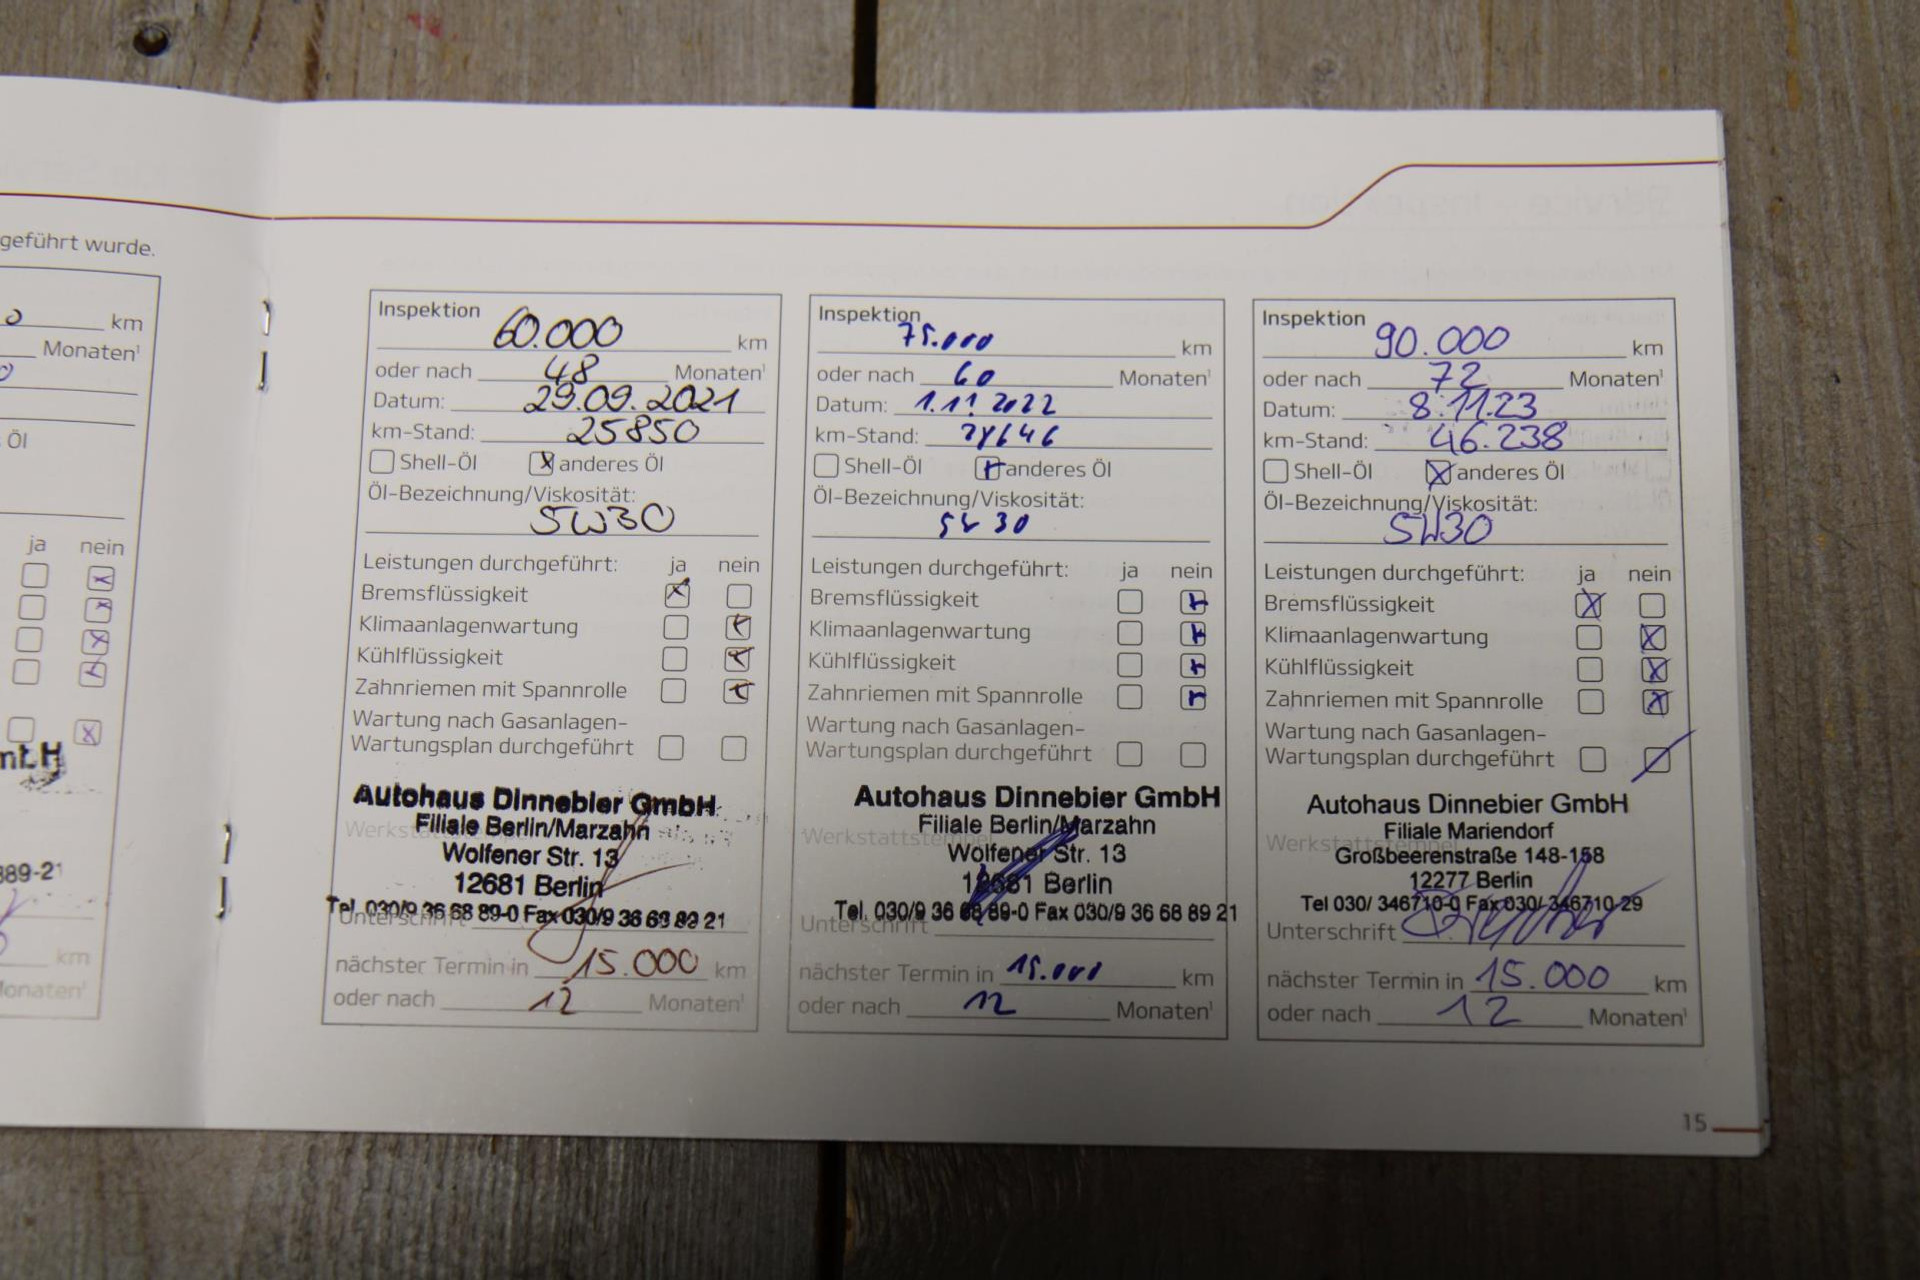 geführt wurde.
km
Monaten¹
Öl
ja nein
mbH
889-21
km
Monaten¹
Inspektion 60.000 km
oder nach 48 Monaten¹
Datum: 29.09.2021
km-Stand: 25850
Shell-Öl x anderes Öl
Öl-Bezeichnung/Viskosität:
5W30
Leistungen durchgeführt: ja nein
Bremsflüssigkeit
Klimaanlagenwartung
Kühlflüssigkeit
Zahnriemen mit Spannrolle
Wartung nach Gasanlagen-
Wartungsplan durchgeführt
Autohaus Dinnebier GmbH
Filiale Berlin/Marzahn
Werkstattstempel
Wolfener Str. 13
12681 Berlin
Tel. 030/9 36 68 89-0 Fax 030/9 36 68 89 21
Unterschrift
nächster Termin in 15.000 km
oder nach 12 Monaten¹
Inspektion 75.000 km
oder nach 60 Monaten¹
Datum: 1.11.2022
km-Stand:
Shell-Öl x anderes Öl
Öl-Bezeichnung/Viskosität:
5W30
Leistungen durchgeführt: ja nein
Bremsflüssigkeit
Klimaanlagenwartung
Kühlflüssigkeit
Zahnriemen mit Spannrolle
Wartung nach Gasanlagen-
Wartungsplan durchgeführt
Autohaus Dinnebier GmbH
Filiale Berlin/Marzahn
Werkstattstempel
Wolfener Str. 13
12681 Berlin
Tel. 030/9 36 68 89-0 Fax 030/9 36 68 89 21
Unterschrift
nächster Termin in 15.000 km
oder nach 12 Monaten¹
Inspektion 90.000 km
oder nach 72 Monaten¹
Datum: 8.11.23
km-Stand: 46.238
Shell-Öl x anderes Öl
Öl-Bezeichnung/Viskosität:
5W30
Leistungen durchgeführt: ja nein
Bremsflüssigkeit
Klimaanlagenwartung
Kühlflüssigkeit
Zahnriemen mit Spannrolle
Wartung nach Gasanlagen-
Wartungsplan durchgeführt
Autohaus Dinnebier GmbH
Filiale Mariendorf
Werkstattstempel
Großbeerenstraße 148-158
12277 Berlin
Tel 030/ 346710-0 Fax 030/ 346710-29
Unterschrift
nächster Termin in 15.000 km
oder nach 12 Monaten¹
15